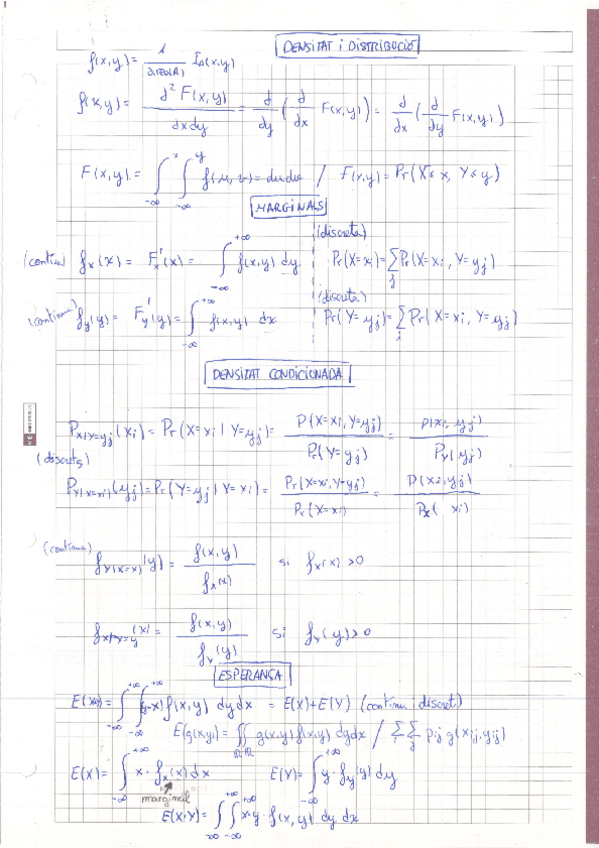 DENSITAT i DISTRIBUCIÓ
f(x,y) = 1/area(A) I_A(x,y)
f(x,y) = d² F(x,y) / dxdy = d/dy ( d/dx F(x,y) ) = d/dx ( d/dy F(x,y) )
F(x,y) = ∫_{-∞}^{x} ∫_{-∞}^{y} f(u,v) = du dv / F(x,y) = Pr(X≤x, Y≤y)
MARGINALS
(continu) f_x(x) = F'_x(x) = ∫_{-∞}^{+∞} f(x,y) dy
(discreta) Pr(X=xi) = Σ_j Pr(X=xi, Y=yj)
(continua) f_y(y) = F'_y(y) = ∫_{-∞}^{+∞} f(x,y) dx
(discreta) Pr(Y=yj) = Σ_i Pr(X=xi, Y=yj)
DENSITAT CONDICIONADA
P_{X|Y=yj}(xi) = Pr(X=xi | Y=yj) = P(X=xi, Y=yj) / Pr(Y=yj) = P(xi, yj) / P_Y(yj)
(discreta)
P_{Y|X=xi}(yj) = Pr(Y=yj | X=xi) = Pr(X=xi, Y=yj) / Pr(X=xi) = P(xi, yj) / P_X(xi)
(continua) f_{Y|X=x}(y) = f(x,y) / f_X(x) si f_X(x) > 0
f_{X|Y=y}(x) = f(x,y) / f_Y(y) si f_Y(y) > 0
ESPERANÇA
dy dx = E(X)+E(Y) (continu i discret)
E(g(x,y)) = ∬_{ℝ ℝ} g(x,y) f(x,y) dy dx / Σ_i Σ_j pij g(xij, yij)
E(X) = ∫_{-∞}^{+∞} x · f_X(x) dx E(Y) = ∫_{-∞}^{+∞} y · f_Y(y) dy
marginal
E(X·Y) = ∫_{-∞}^{+∞} ∫_{-∞}^{+∞} x·y · f(x,y) dy dx